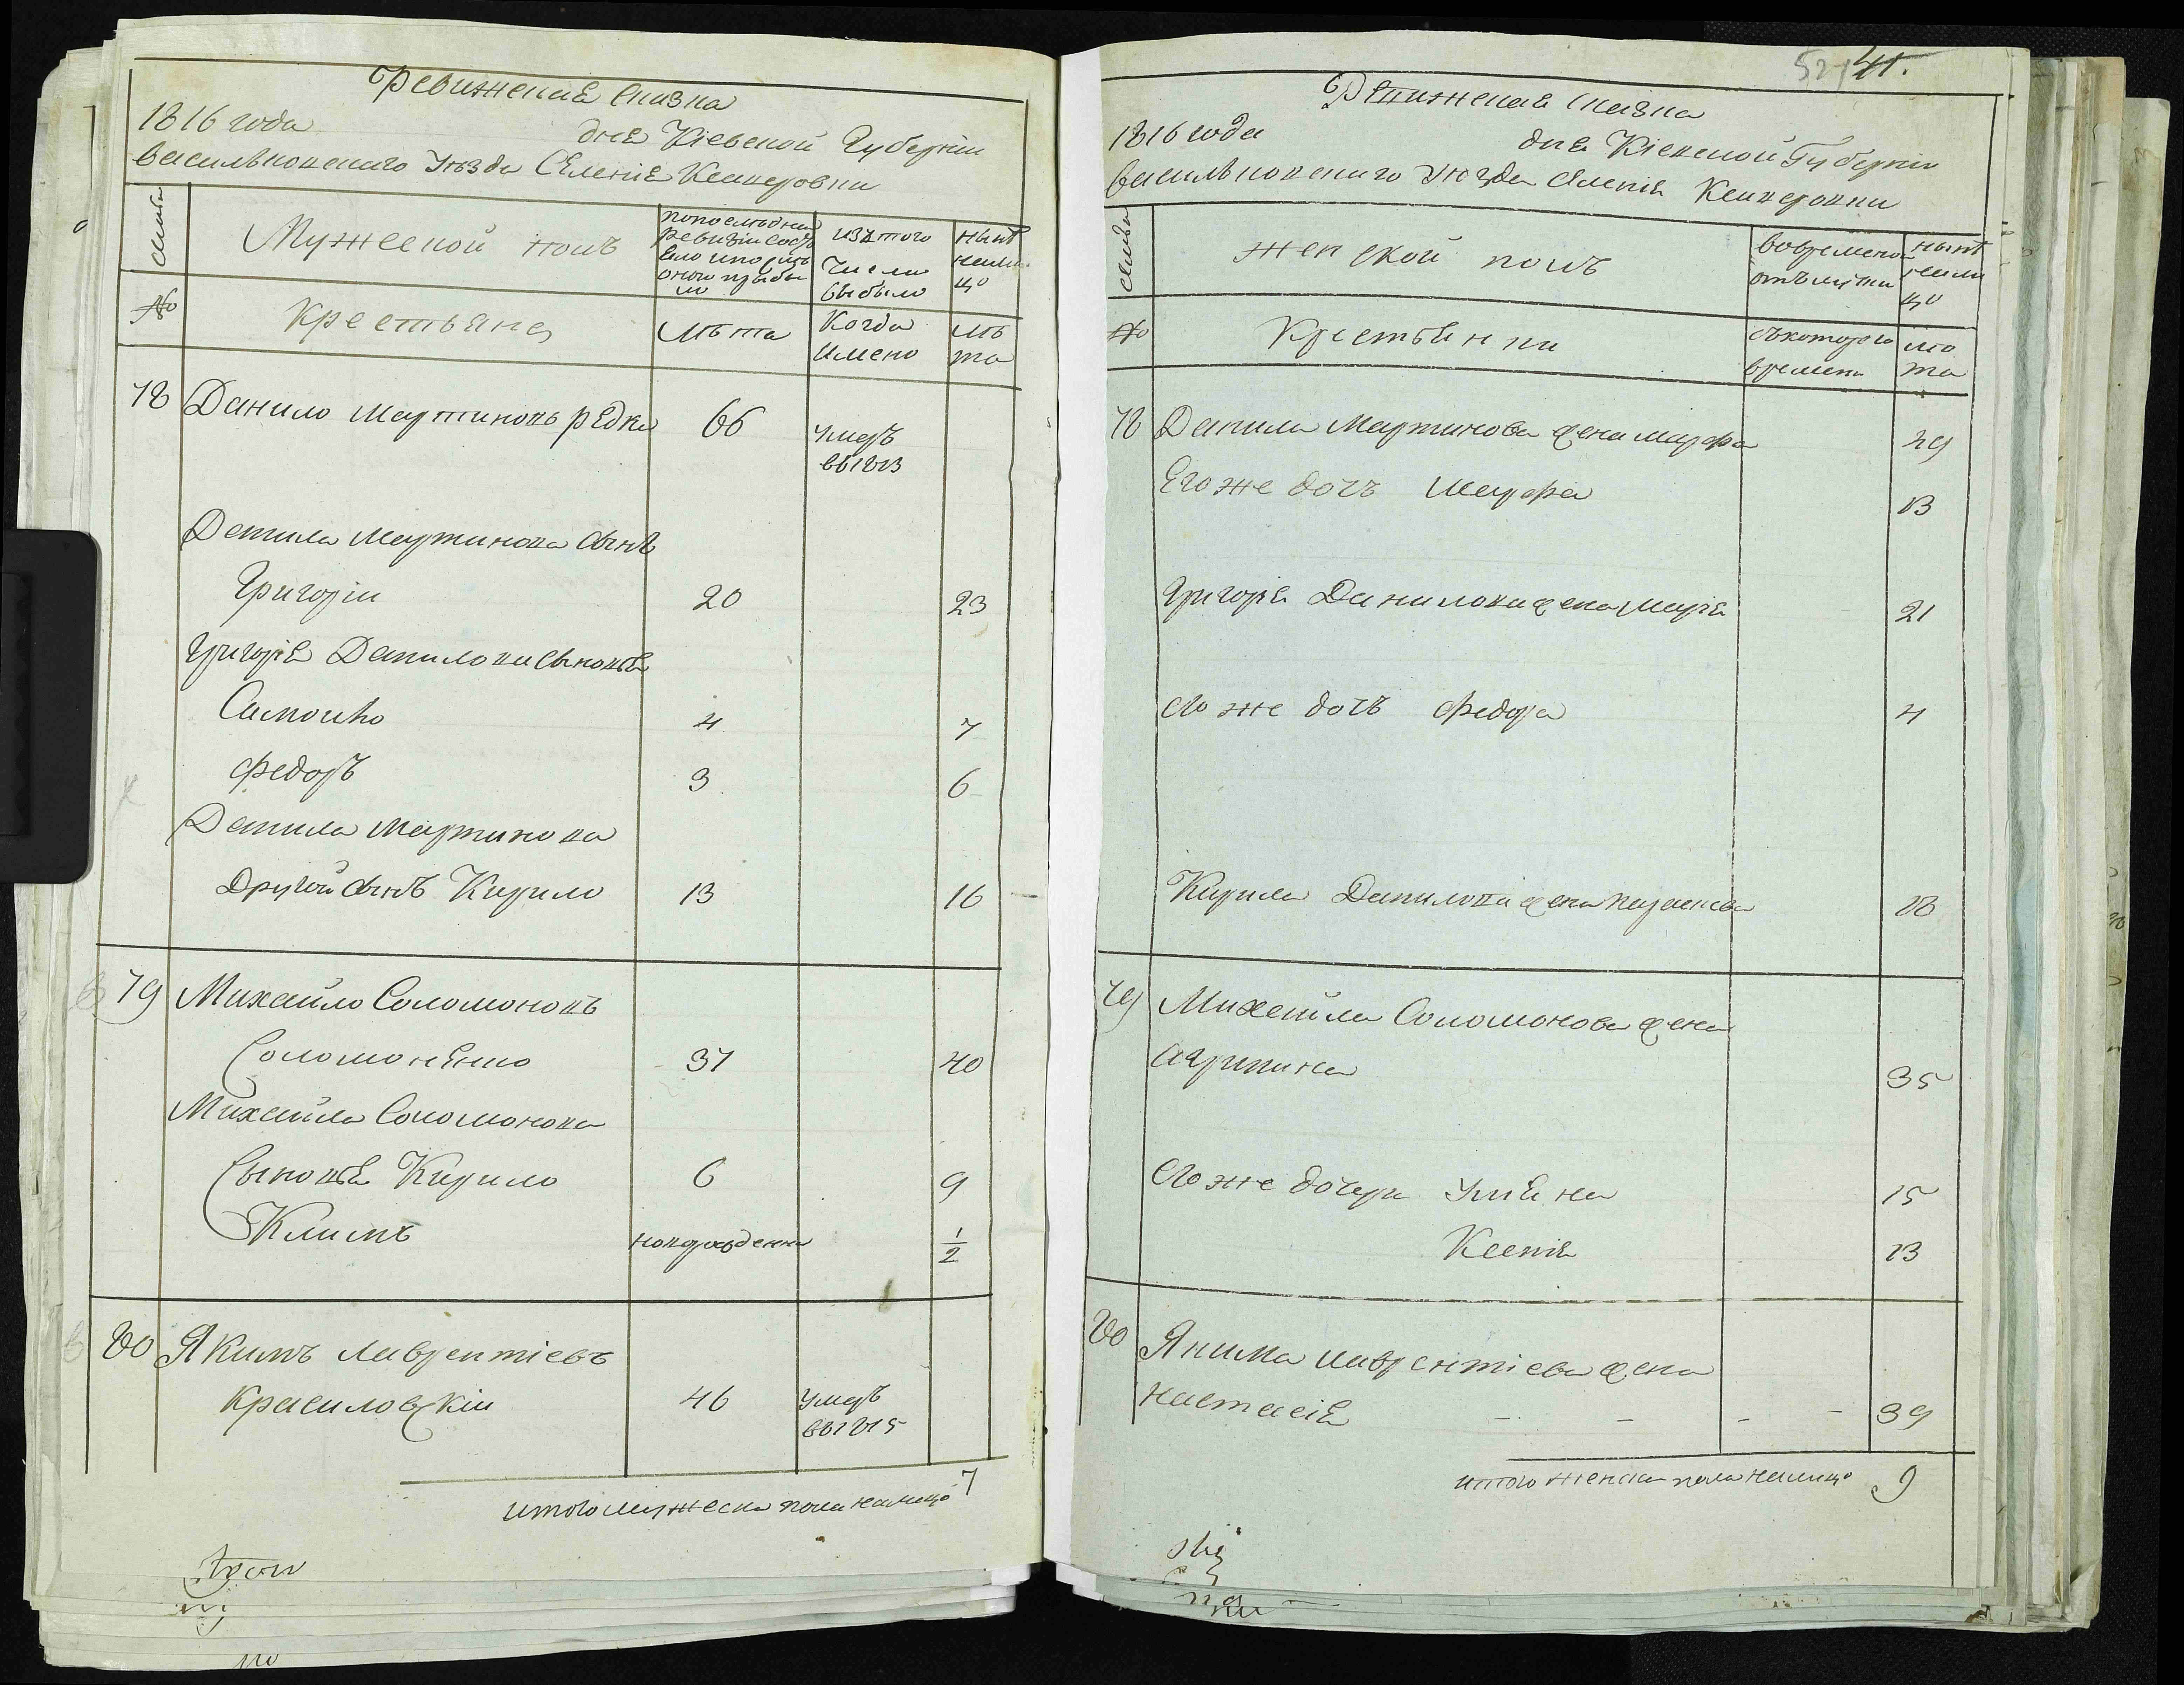 Ревижская сказка
1816 года дня Кіевской Губерніи
васильковского уѣзда Селенія Кашеровки
Семьи
Мужеской полъ
попослѣдней ревизіи состояло и послѣ оной прибыло
изъ того числа выбыло
Нынѣ налицо
№
Крестьяне
Лѣта
Когда имено
лѣта
78 Данило Мартиновъ редка 66 умеръ в 1813
Данила Мартинова сынъ
Григоріи 20 23
Григорія Данилова сыновья
Самойло 4 7
Федоръ 3 6
Данила Мартинова
Другой сынъ Кирило 13 16
79 Михайло Соломоновъ
Соломонѣнко 37 40
Михайла Соломонова
Сыновья Кирило 6 9
Климъ новорожденны 1/2
80 Якимъ Лаврентіевъ
Красиловскіи 46 умеръ в 1815
итого мужеска пола налицо 7
41.
Ревижская сказка
1816 года дня Кіевской Губерніи
васильковского уѣзда Селенія Кашеровки
Семьи
женской полъ
вовременой отълучки
нынѣ налицо
№
Крестьянки
съкоторого времени
лѣта
78 Данила Мартинова жена Марфа 49
Его же дочъ Марфа 13
Григорія Данилова жена Марія 21
его же дочъ Федора 4
Кирила Данилова жена параскева 18
79 Михайла Соломонова жена
Агрипина 35
его же дочери Уліяна 15
Ксенія 13
80 Якима лаврентіева жена
Настасія - - - - 39
итого женска пола налицо 9